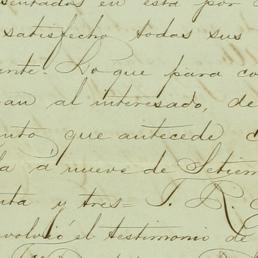 sentados en esta por
satisfecho todas sus
ente. Lo que para co
an al interesado, de
nto que antecede
da a nueve de Setiem
nta y tres= J. R.
evolvió el testimonio de